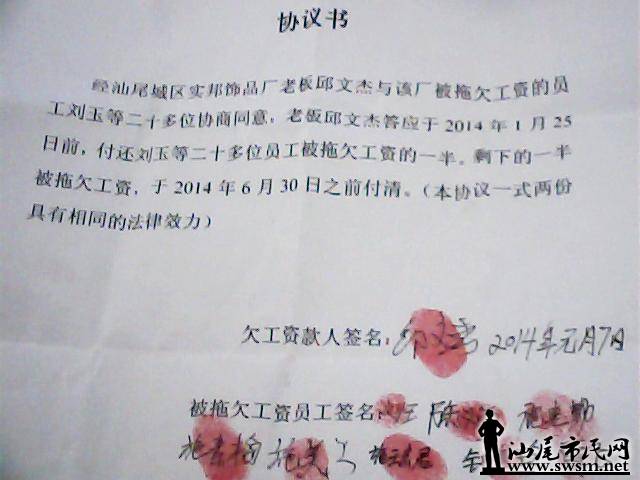 协议书
经汕尾城区实邦饰品厂老板邱文杰与该厂被拖欠工资的员
工刘玉等二十多位协商同意，老板邱文杰答应于2014年1月25
日前，付还刘玉等二十多位员工被拖欠工资的一半。剩下的一半
被拖欠工资，于2014年6月30日之前付清。（本协议一式两份
具有相同的法律效力）
欠工资款人签名：邱文杰 2014年元月7日
被拖欠工资员工签名：
汕尾市民网
www.swsm.net